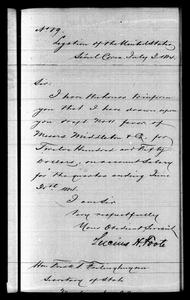 No 89
Legation of the United States
Seoul Corea July 2. 1884.
Sir:
I have the honor to inform
you that I have this day drawn
upon you in favor of
Messrs Middleton & Co. for
Twelve Hundred and Fifty
Dollars, on account of salary
for the quarter ending June
30th 1884.
I am Sir
Very respectfully
Your Obedient Servant
Lucius H. Foote
Hon. Fredk T. Frelinghuysen
Secretary of State